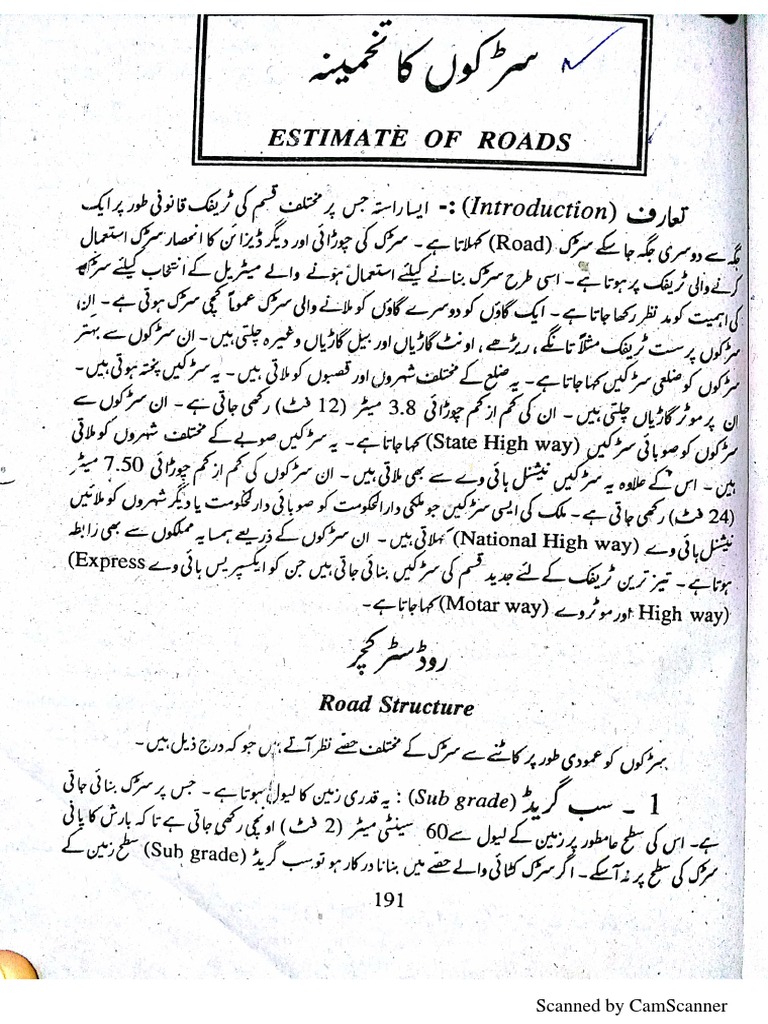 سڑکوں کا تخمینہ
ESTIMATE OF ROADS
تعارف (Introduction) :- ایسا راستہ جس پر مختلف قسم کی ٹریفک قانونی طور پر ایک
جگہ سے دوسری جگہ جا سکے سڑک (Road) کہلاتا ہے۔ سڑک کی چوڑائی اور دیگر ڈیزائن کا انحصار سڑک استعمال
کرنے والی ٹریفک پر ہوتا ہے۔ اسی طرح سڑک بنانے کیلئے استعمال ہونے والے میٹریل کے انتخاب کیلئے سڑک
کی اہمیت کو مد نظر رکھا جاتا ہے۔ ایک گاؤں کو دوسرے گاؤں کو ملانے والی سڑک عموماً کچی سڑک ہوتی ہے۔ ان
سڑکوں پر سست ٹریفک مثلاً تانگے، ریڑھے، اونٹ گاڑیاں اور بیل گاڑیاں وغیرہ چلتی ہیں۔ ان سڑکوں سے بہتر
سڑکوں کو ضلعی سڑکیں کہا جاتا ہے۔ یہ ضلع کے مختلف شہروں اور قصبوں کو ملاتی ہیں۔ یہ سڑکیں پختہ ہوتی ہیں۔
ان پر موٹر گاڑیاں چلتی ہیں۔ ان کی کم از کم چوڑائی 3.8 میٹر (12 فٹ) رکھی جاتی ہے۔ ان سڑکوں سے
سڑکوں کو صوبائی سڑکیں (State High way) کہا جاتا ہے۔ یہ سڑکیں صوبے کے مختلف شہروں کو ملاتی
ہیں۔ اس کے علاوہ یہ سڑکیں نیشنل ہائی وے سے بھی ملاتی ہیں۔ ان سڑکوں کی کم از کم چوڑائی 7.50 میٹر
(24 فٹ) رکھی جاتی ہے۔ ملک کی ایسی سڑکیں جو ملکی دارالحکومت کو صوبائی دارالحکومت یا دیگر شہروں کو ملائیں
نیشنل ہائی وے (National High way) کہلاتی ہیں۔ ان سڑکوں کے ذریعے ہمسایہ مملکوں سے بھی رابطہ
ہوتا ہے۔ تیز ترین ٹریفک کے لئے جدید قسم کی سڑکیں بنائی جاتی ہیں جن کو ایکسپریس ہائی وے (Express
High way) اور موٹر وے (Motar way) کہا جاتا ہے۔
روڈ سٹرکچر
Road Structure
سڑکوں کو عمودی طور پر کاٹنے سے سڑک کے مختلف حصے نظر آتے ہیں جو کہ درج ذیل ہیں۔
1 ۔ سب گریڈ (Sub grade) : یہ قدرتی زمین کا لیول ہوتا ہے۔ جس پر سڑک بنائی جاتی
ہے۔ اس کی سطح عام طور پر زمین کے لیول سے 60 سینٹی میٹر (2 فٹ) اونچی رکھی جاتی ہے تاکہ بارش کا پانی
سڑک کی سطح پر نہ آ سکے۔ اگر سڑک کٹائی والے حصے میں بنانا درکار ہو تو سب گریڈ (Sub grade) سطح زمین کے
191
Scanned by CamScanner